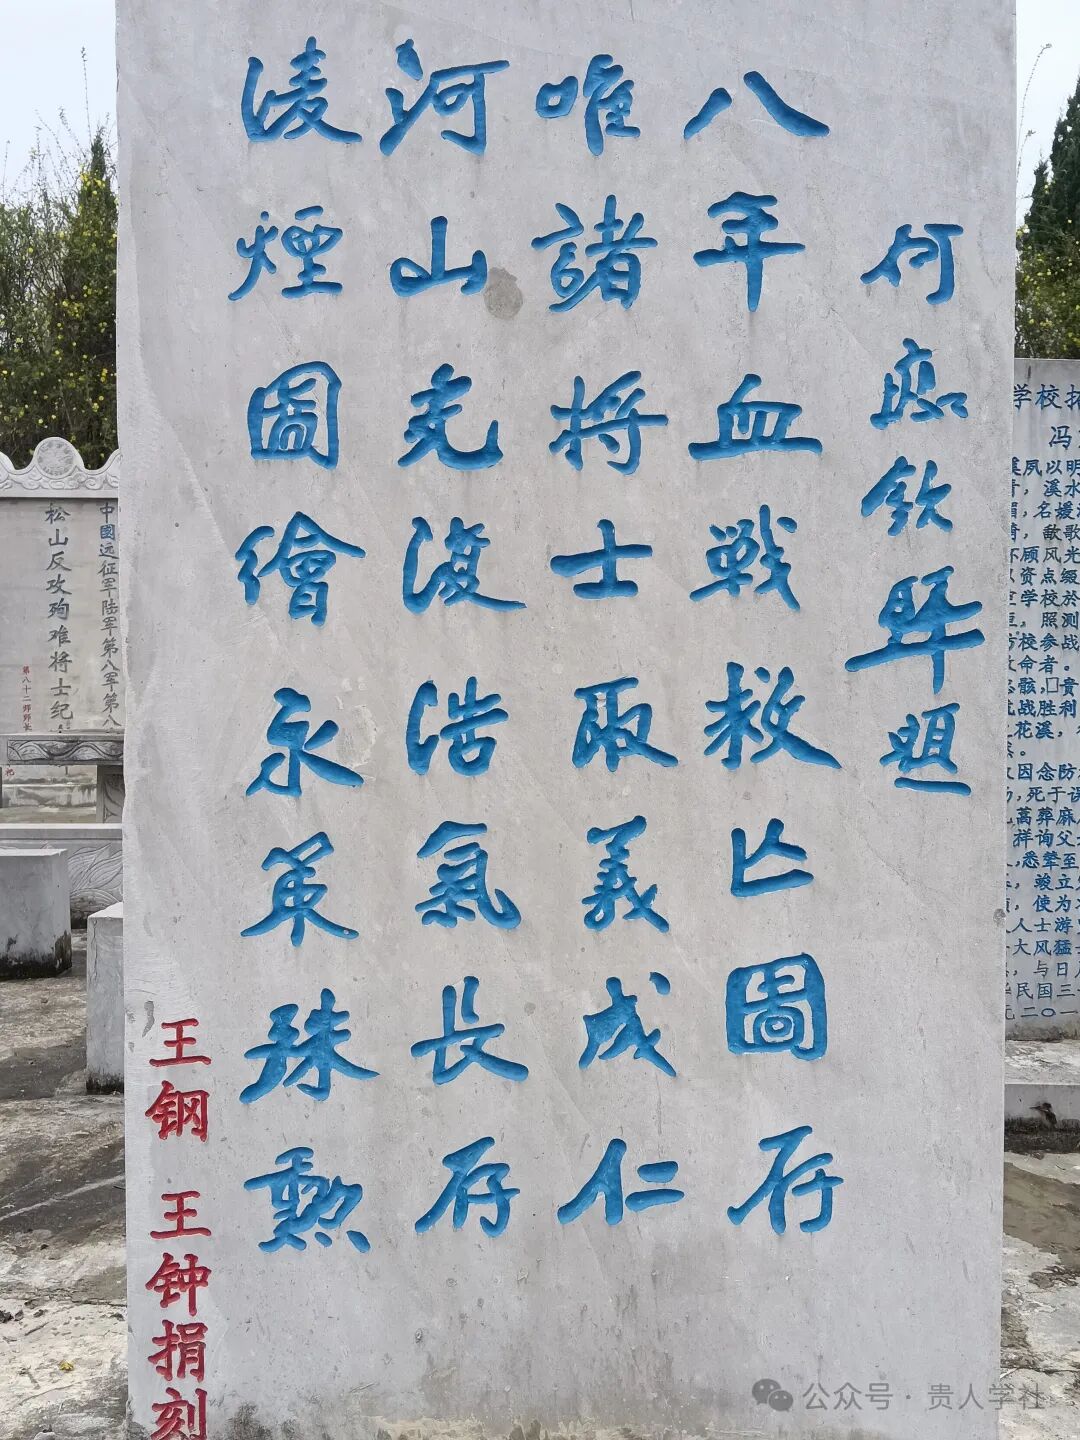 何應欽題
八年血戰救亡圖存
唯諸將士取義成仁
河山光復浩氣長存
淩煙圖繪永策殊勳
王钢 王钟捐刻
中國远征军陆军第八军第八
松山反攻殉难将士纪
第八十二师师长
学校拓
冯
夙以明
，溪水
，名媛
，歃歌
顾风光
资点缀
学校於
，照测
校参战
命者。
骸,□贵
战胜利
花溪，
因念防
，死于误
藁葬麻
祥询父
,悉辇至
，竣立
，使为
人士游
大风猛
，与日
民国三
二〇一
公众号·贵人学社